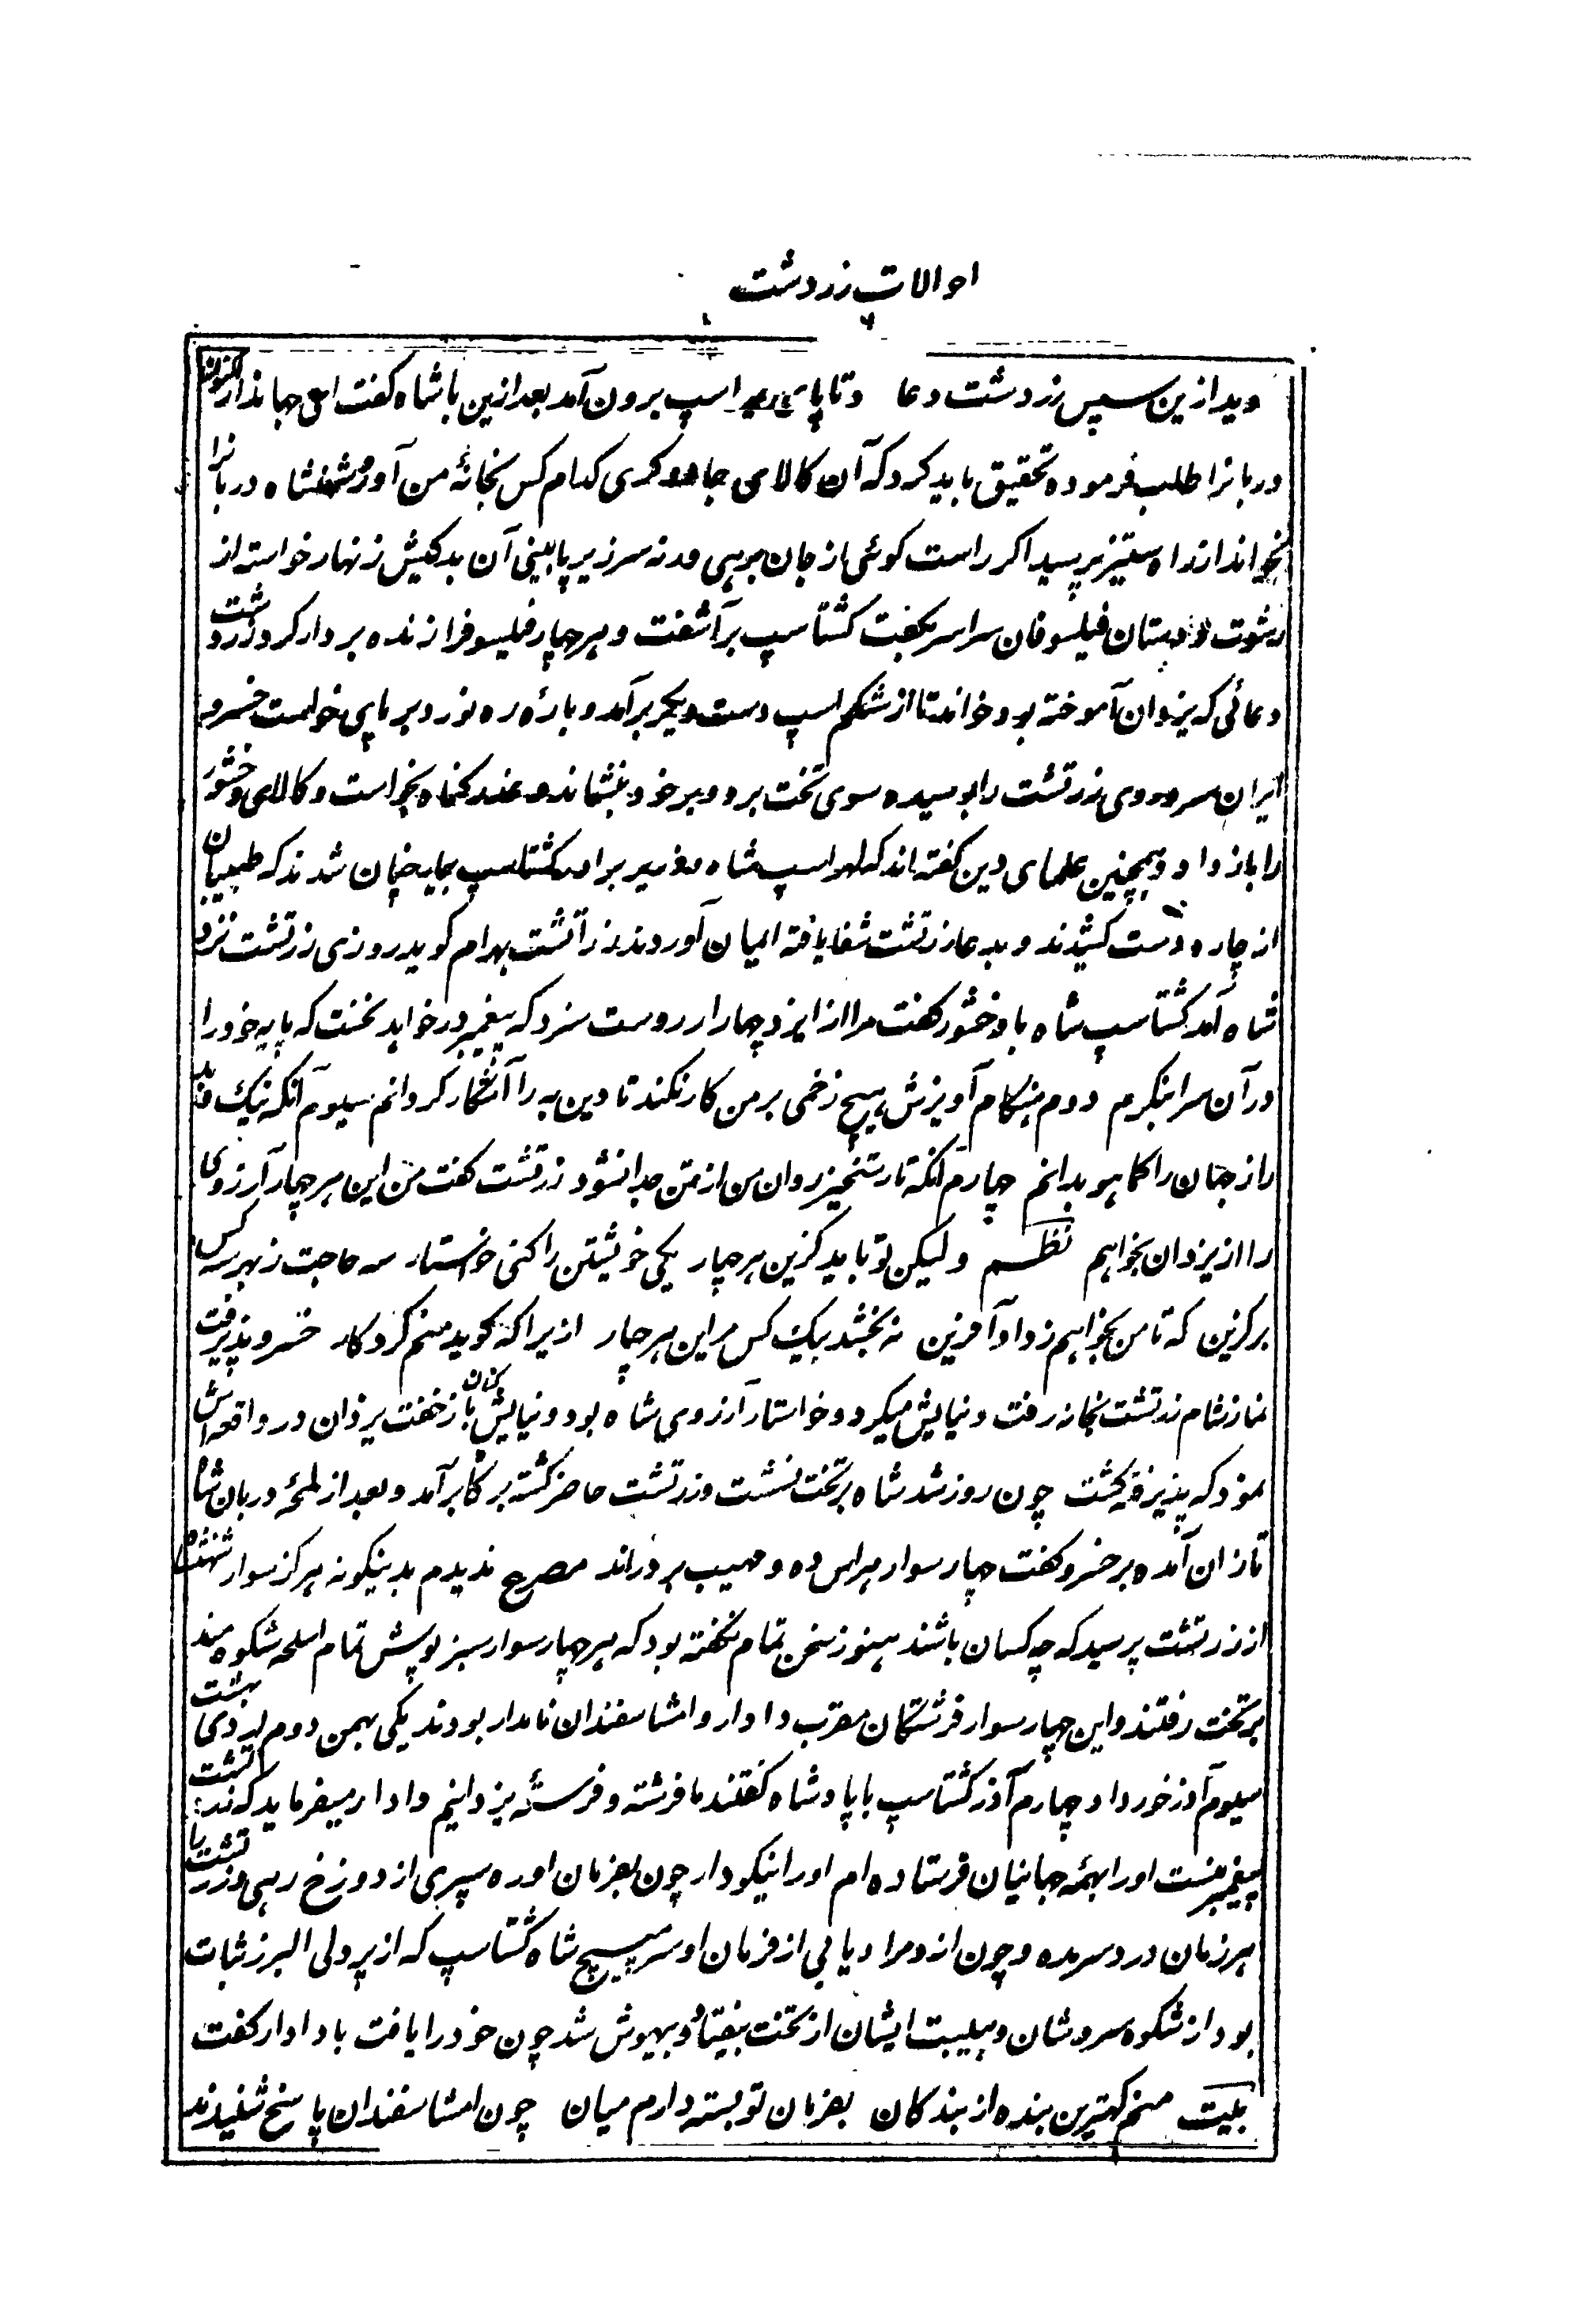 احوالات زردشت
دید ازین سپس زردشت دعا و تا پای دیگر اسپ برون آمد بعد ازین با شاه گفت ای جهاندار اکنون
دربانرا طلب فرموده تحقیق باید کرد که آن کالای جادوگری کدام کس بخانهٔ من آورد شهنشاه دربانرا
بخواند از راه ستیز پرسید اگر راست گوئی از جان برهی ورنه سر زیر پا بینی آن بدکیش زنهار خواسته از
رشوت و دستان فیلسوفان سراسر بگفت گشتاسپ برآشفت و هر چهار فیلسوف را زنده بر دار کرد و زردشت
دعائی که یزدان آموخته بود خواند تا از شکم اسپ دست دیگر برآمد و بارهٔ ره نورد بر پای خواست خسرو
ایران سر و روی زرتشت را بوسیده سوی تخت برد و بر خود بنشاند و عذر گناه بخواست و کالای وخشور
را باز داد و همچنین علمای دین گفته اند که لهراسپ شاه و زریر برادر گشتاسپ بیمار چنان شدند که طبیبان
از چاره دست کشیدند و بدعا زرتشت شفا یافته ایمان آوردند زراتشت بهرام گوید روزی زرتشت نزد
شاه آمد گشتاسپ شاه با وخشور گفت مرا از ایزد چهار آرزوست سزد که پیغمبر درخواهد نخست که پایه خود را
در آن سرا بنگرم دوم هنگام آویزش هیچ زخمی بر من کار نکند تا دین به را آشکار کردانم سیوم آنکه نیک و بد
راز جهان را کماهو بدانم چهارم آنکه تا رستخیز روان من از تن جدا نشود زرتشت گفت من این هر چهار آرزوی
را از یزدان بخواهم نظم ولیکن تو باید کزین هر چهار یکی خویشتن را کنی خواستار سه حاجت ز بهر سه کس
برگزین که تا من بخواهم ز دادآفرین نه بخشد بیک کس مر این هر چهار ازیرا که گوید منم کردگار خسرو پذیرفت
نماز شام زرتشت بخانه رفت و نیایش میکرد و خواستار آرزوی شاه بود و نیایش کنان باز خفت یزدان در واقعه اش
نمود که پذیرفته گشت چون روز شد شاه بر تخت نشست و زرتشت حاضر گشته بر گاه برآمد و بعد از لمحه دربان شاه
تازان آمده بر خسرو گفت چهار سوار هراس ده و مهیب بر در اند مصرع ندیدم بدینگونه هرگز سوار شهنشاه
از زرتشت پرسید که چه کسان باشند هنوز سخن تمام نگفته بود که هر چهار سوار سبزپوش تمام اسلحه شکوه مند
بر تخت رفتند و این چهار سوار فرشتگان مقرب دادار و امشاسفندان نامدار بودند یکی بهمن دوم اردی بهشت
سیوم آذر خورداد چهارم آذر گشتاسپ با پادشاه گفتند ما فرشته و فرستهٔ یزدانیم دادار میفرماید که زرتشت
پیغمبر منست او را بهمه جهانیان فرستاده ام او را نیکو دار چون بفرمان او ره سپری از دوزخ رهی و زرتشت را
هر زمان درد سر مده و چون ازو مراد یابی از فرمان او سر مپیچ شاه گشتاسپ که از پردلی البرز ثبات
بود از شکوه سروشان و هیبت ایشان از تخت بیفتاد و بیهوش شد چون خود را یافت با دادار گفت
بیت منم کهترین بنده از بندگان بفرمان تو بسته دارم میان چون امشاسفندان پاسخ شنیدند